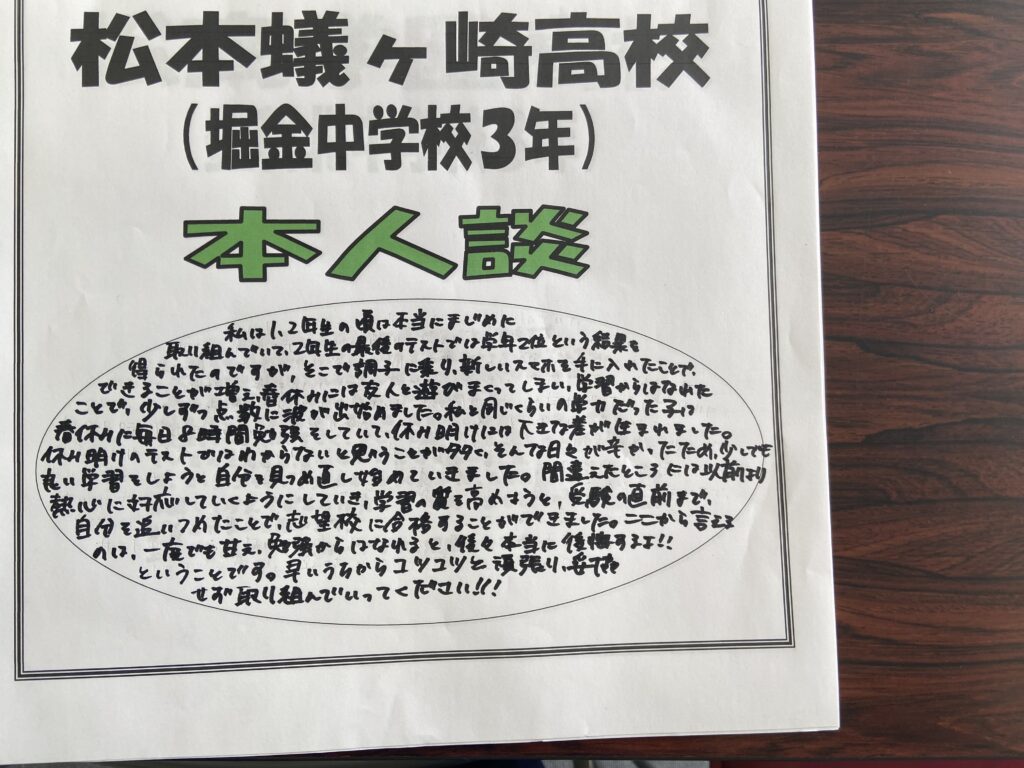 松本蟻ヶ崎高校
(堀金中学校3年)
本人談
私は1、2年生の頃は本当にまじめに
取り組んでいて、2年生の最後のテストでは学年2位という結果を
得られたのですが、そこで調子に乗り、新しいスマホを手に入れたことで、
できることが増え、春休みには友人と遊びまくってしまい、学習からはなれた
ことで、少しずつ点数に波が出始めました。私と同じくらいの学力だった子は
春休みに毎日8時間勉強をしていて、休み明けには大きな差が生まれました。
休み明けのテストではわからないと思うことが多々く、そんな日々が辛かったため、少しでも
良い学習をしようと自分を見つめ直し始めていきました。間違えたところには以前より
熱心に対応していくようにしていき、学習の質を高めようと、受験の直前まで、
自分を追いつめたことで、志望校に合格することができました。ここから言える
のは、一度でも甘え、勉強からはなれると、後々本当に後悔するよ!!
ということです。早いうちからコツコツと頑張り、妥協
せず取り組んでいってください!!!